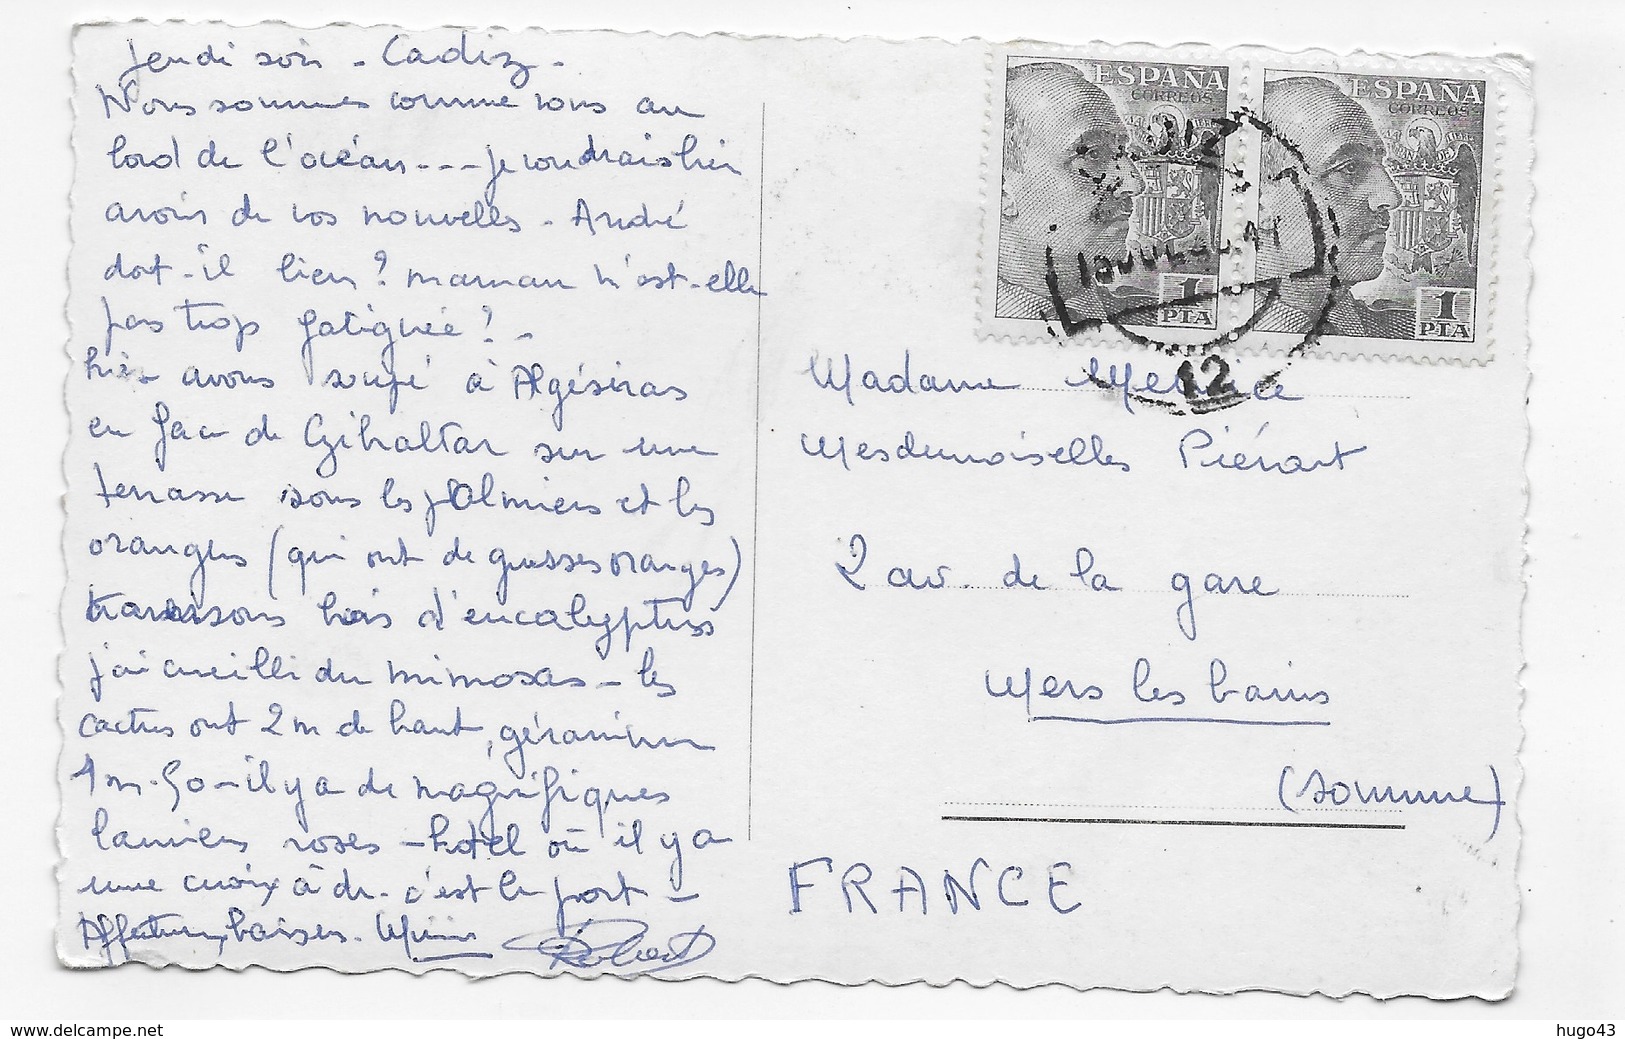 Jeudi soir - Cadiz -
Nous sommes comme vous au
bord de l'océan --- je voudrais bien
avoir de vos nouvelles - André
dort-il bien? maman n'est-elle
pas trop fatiguée? -
hier avons soupé à Algésiras
en face de Gibraltar sur une
terrasse sous les palmiers et les
orangers (qui ont de grosses oranges)
traversons bois d'eucalyptus
j'ai cueilli du mimosas - les
cactus ont 2 m de haut, géranium
1 m.50 - il y a de magnifiques
lauriers roses - hotel où il y a
une croix à dr. c'est le port -
Affectueux baisers.
Robert
ESPAÑA
CORREOS
1
PTA
ESPAÑA
CORREOS
1
PTA
12
Madame
Mesdemoiselles Piérart
2 av. de la gare
Mers les bains
(Somme)
FRANCE
www.delcampe.net
hugo43